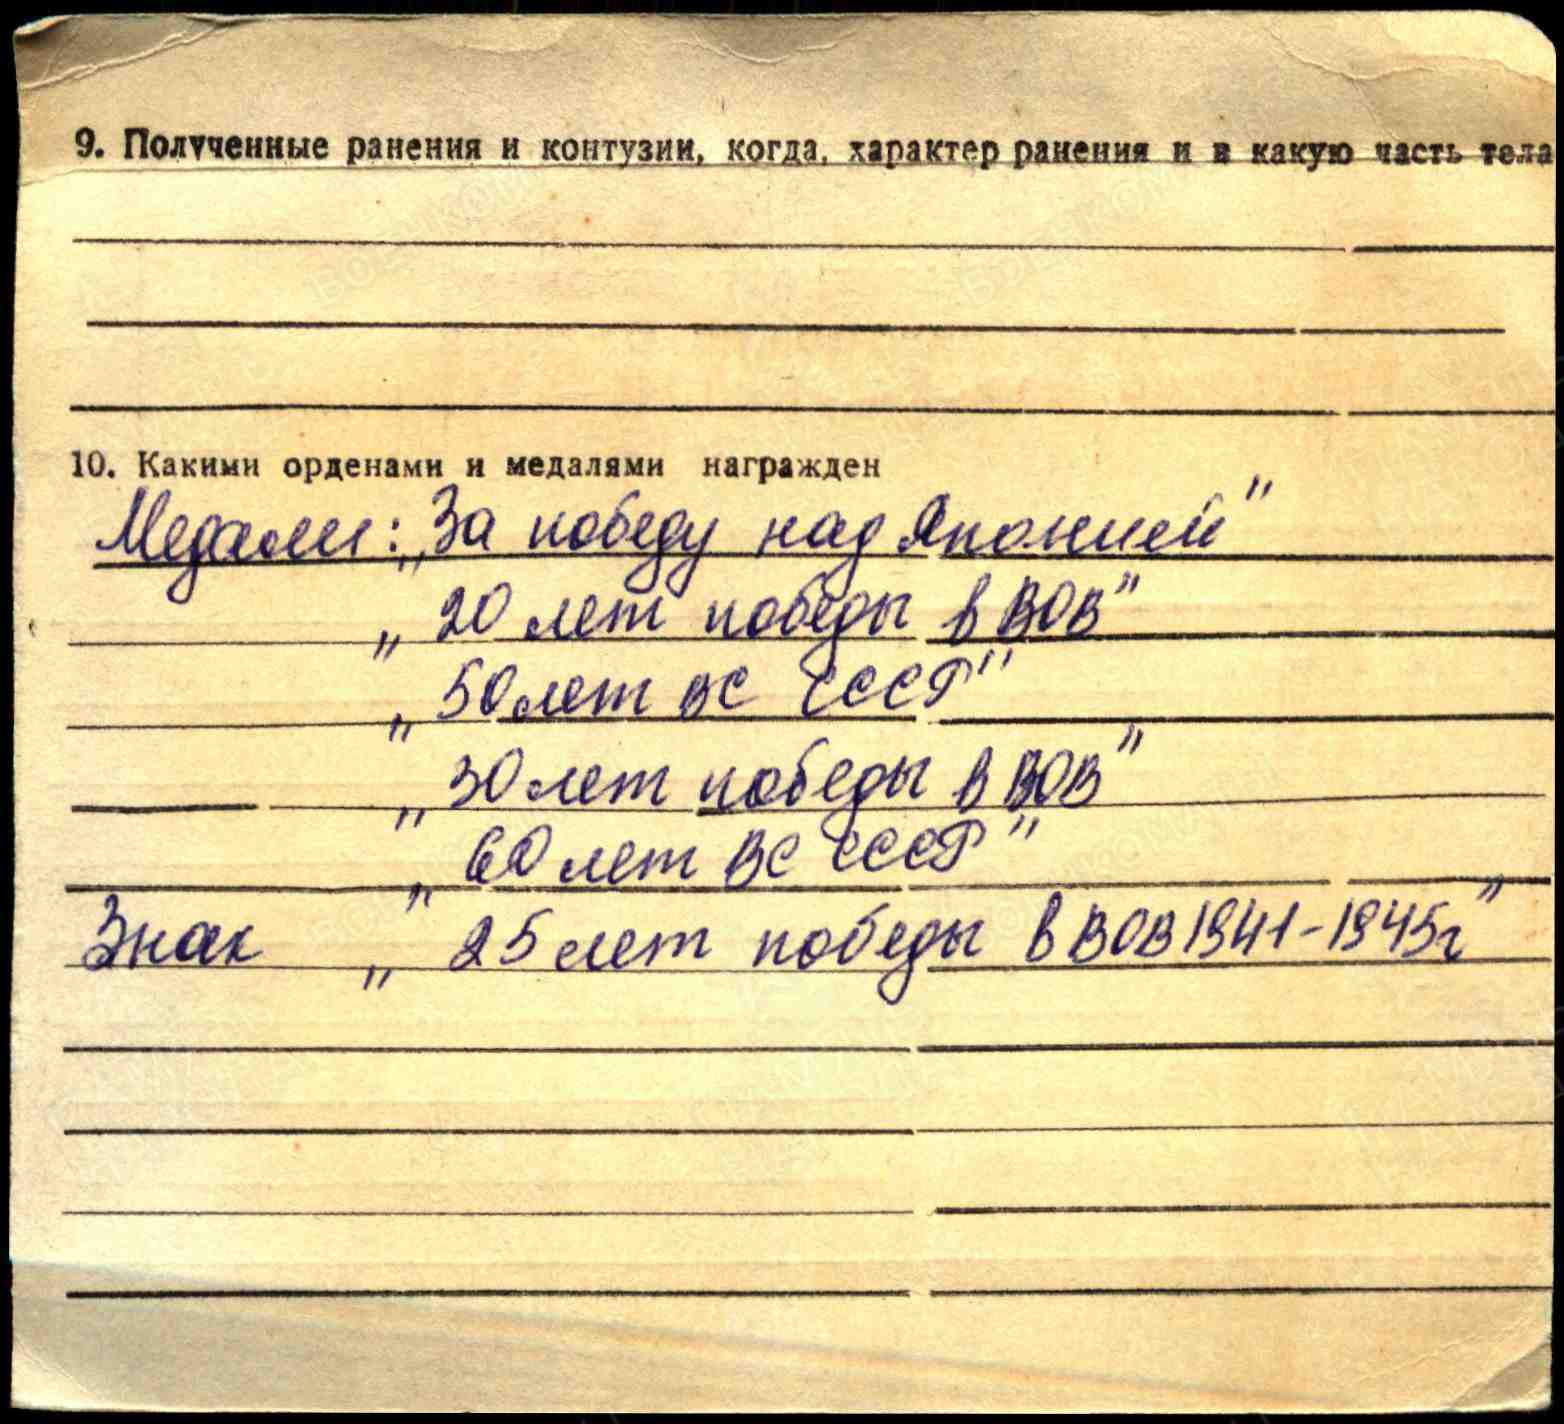 9. Полученные ранения и контузии, когда, характер ранения и в какую часть тела
10. Какими орденами и медалями награжден
Медали: „За победу над Японией"
„20 лет победы в ВОВ"
„50 лет ВС СССР"
„30 лет победы в ВОВ"
„60 лет ВС СССР"
Знак „25 лет победы в ВОВ 1941-1945г"